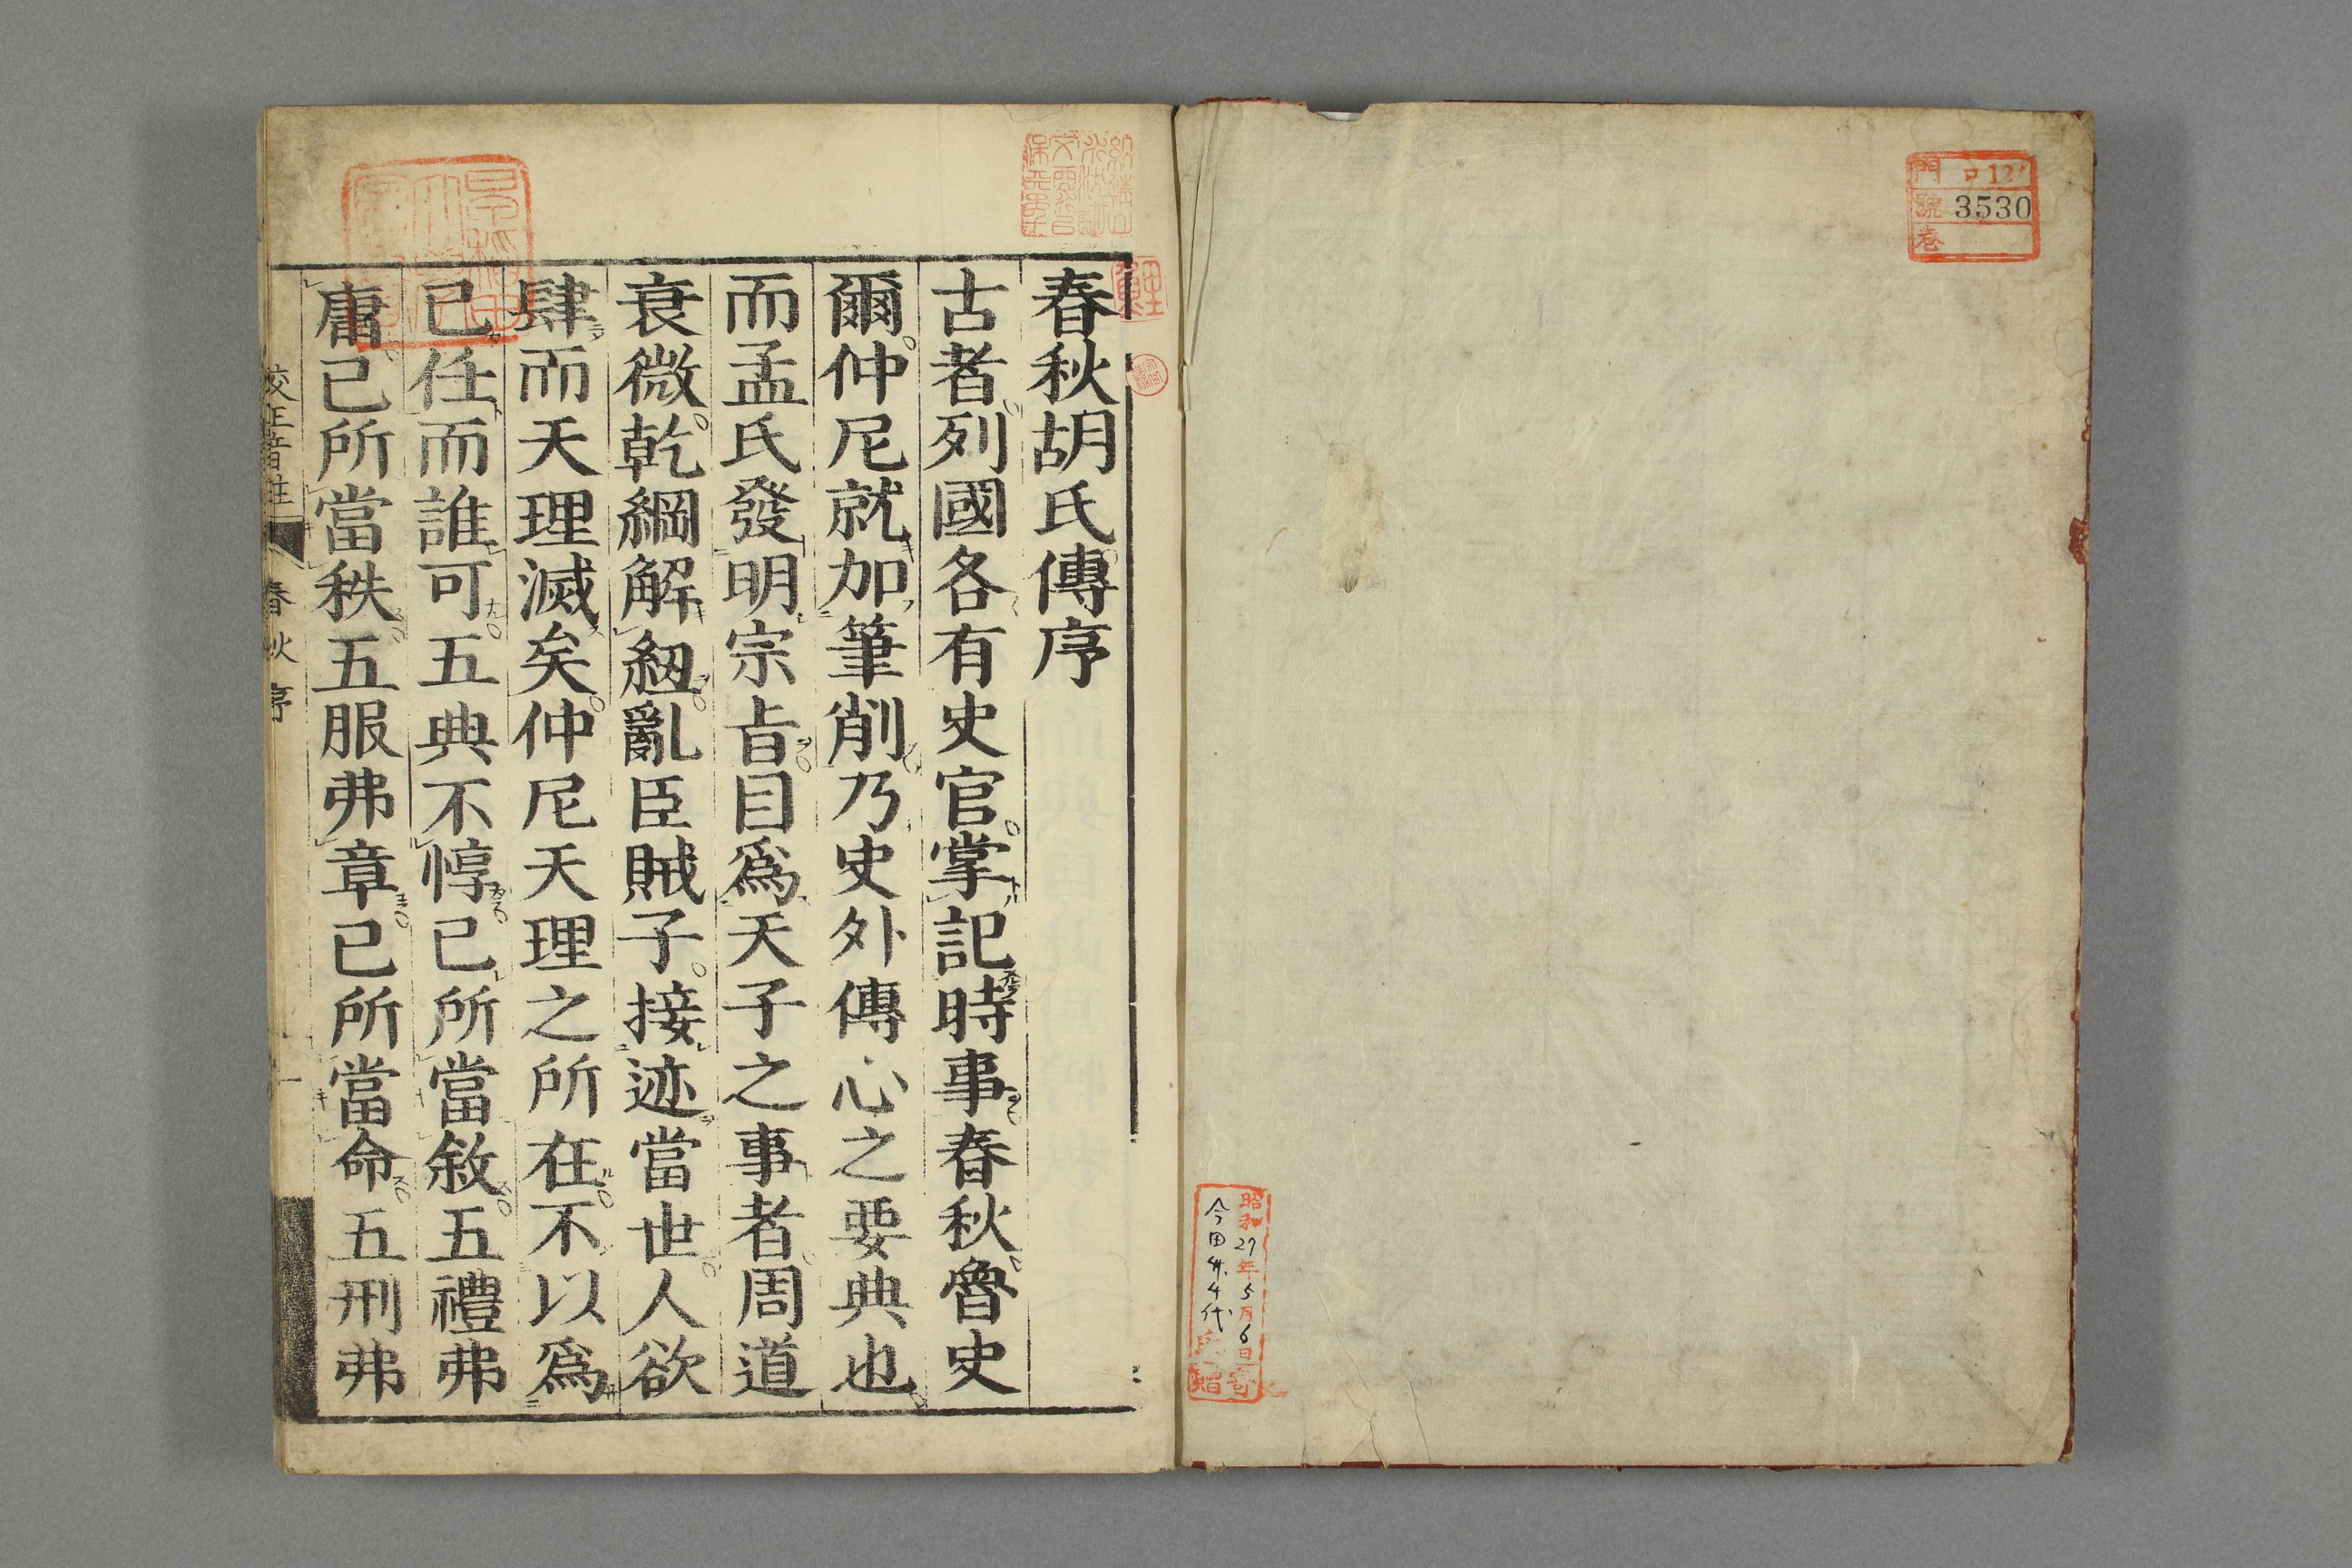 門 ロ12
號 3530
卷
昭和27年5月6日
寄贈
春秋胡氏傳序
古者列國各有史官掌記時事春秋魯史
爾仲尼就加筆削乃史外傳心之要典也
而孟氏發明宗旨目爲天子之事者周道
衰微乾綱解紐亂臣賊子接迹當世人欲
肆而天理滅矣仲尼天理之所在不以爲
己任而誰可五典不惇己所當敘五禮弗
庸己所當秩五服弗章己所當命五刑弗
校正音註 春秋序 一